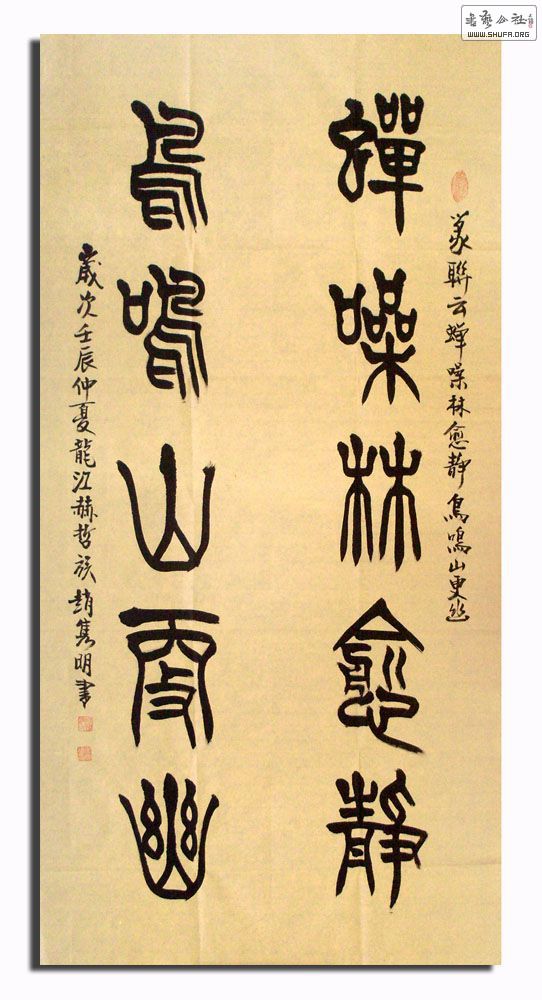 蟬噪林愈靜
鳥鳴山更幽
篆聯云蟬噪林愈靜鳥鳴山更幽
歲次壬辰仲夏龍江赫哲族趙雋明書
書藝公社
WWW.SHUFA.ORG